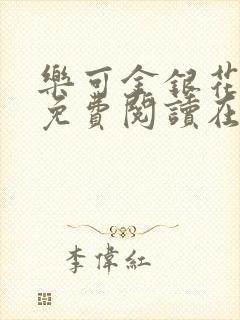 樂可金銀花
免費閱讀在
李偉紅